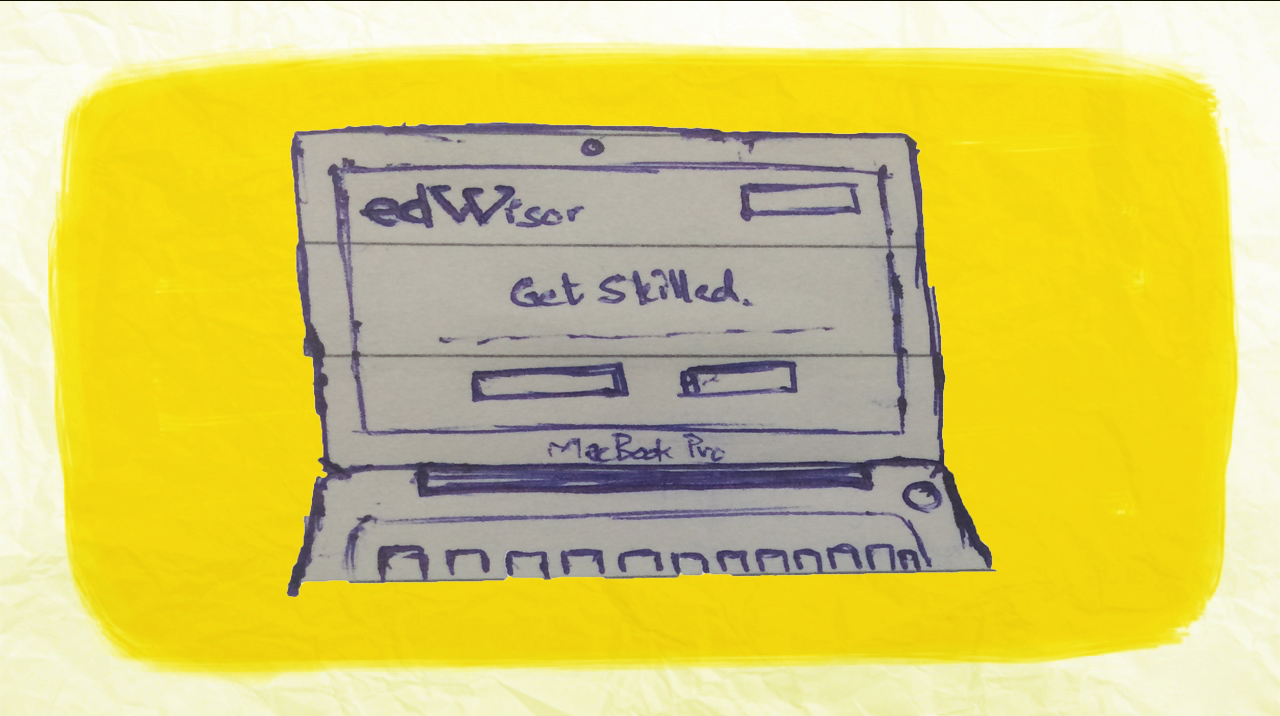 edWisor
Get Skilled.
MacBook Pro